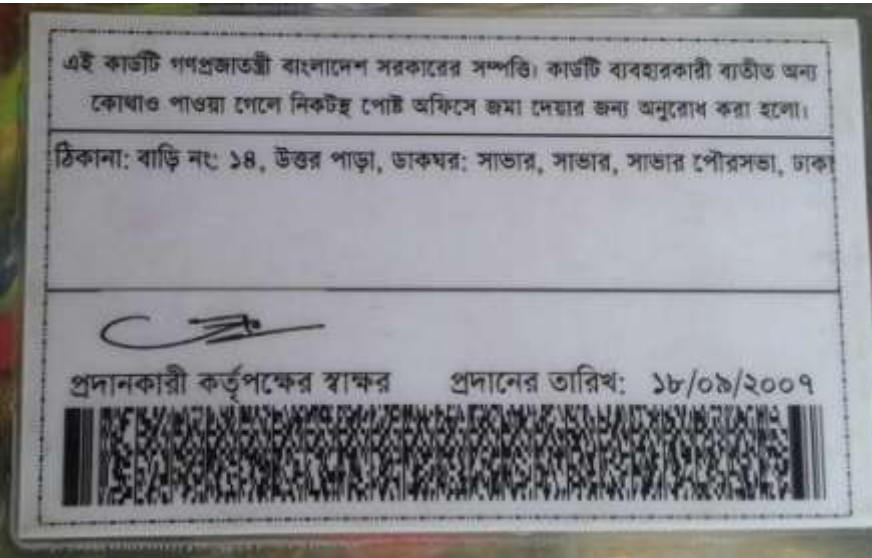 এই কার্ডটি গণপ্রজাতন্ত্রী বাংলাদেশ সরকারের সম্পত্তি। কার্ডটি ব্যবহারকারী ব্যতীত অন্য
কোথাও পাওয়া গেলে নিকটস্থ পোষ্ট অফিসে জমা দেয়ার জন্য অনুরোধ করা হলো।
ঠিকানা: বাড়ি নং: ১৪, উত্তর পাড়া, ডাকঘর: সাভার, সাভার, সাভার পৌরসভা, ঢাকা
প্রদানকারী কর্তৃপক্ষের স্বাক্ষর প্রদানের তারিখ: ১৮/০৯/২০০৭